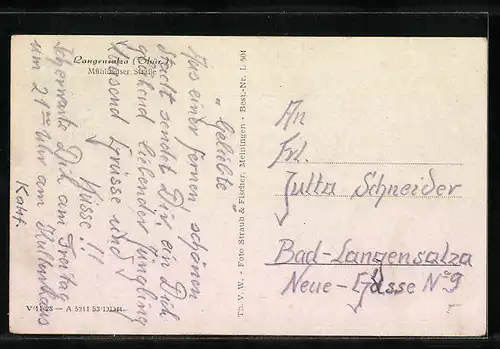 Langensalza (Thür.)
Mühlhäuser Straße
„Geliebte“
Aus einer fernen schönen
Stadt sendet Dir ein Dich
glühend liebender Jüngling
Tausend Grüsse und
Küsse!!
Ich erwarte Dich am Freitag
um 21 Uhr am Kulturhaus
V 11 28 — A 5211 53 DDR
Th. V. W. - Foto Straub & Fischer, Meiningen - Best.-Nr. L 504
An
Frl.
Jutta Schneider
Bad-Langensalza
Neue-Gasse No 9